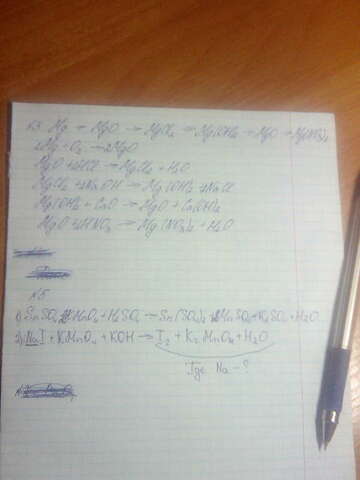 №3 Mg → MgO → MgCl₂ → Mg(OH)₂ → MgO → Mg(NO₃)₂
2Mg + O₂ → 2MgO
MgO + 2HCl → MgCl₂ + H₂O
MgCl₂ + 2NaOH → Mg(OH)₂ + 2NaCl
Mg(OH)₂ + CaO → MgO + Ca(OH)₂
MgO + 2HNO₃ → Mg(NO₃)₂ + H₂O
№5
1) SnSO₄ + KMnO₄ + H₂SO₄ → Sn(SO₄)₂ + MnSO₄ + K₂SO₄ + H₂O
2) NaI + KMnO₄ + KOH → I₂ + K₂MnO₄ + H₂O
Где Na - ?